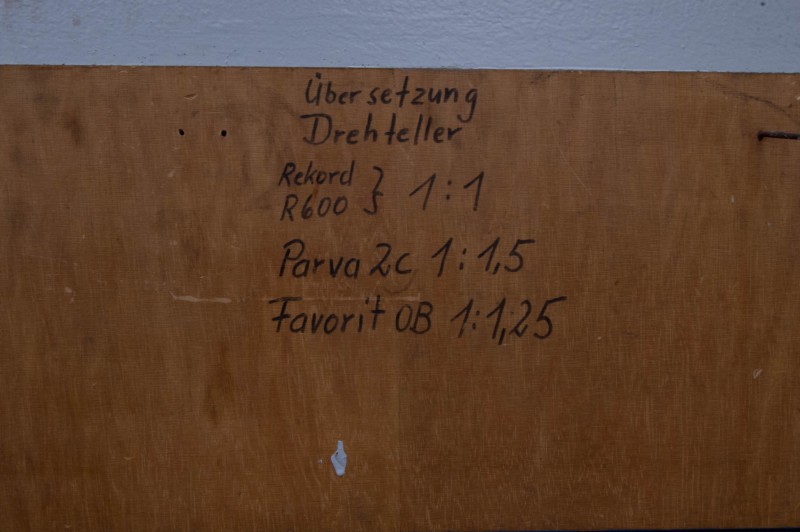 Übersetzung
Drehteller
Rekord
R600 } 1:1
Parva 2c 1:1,5
Favorit OB 1:1,25